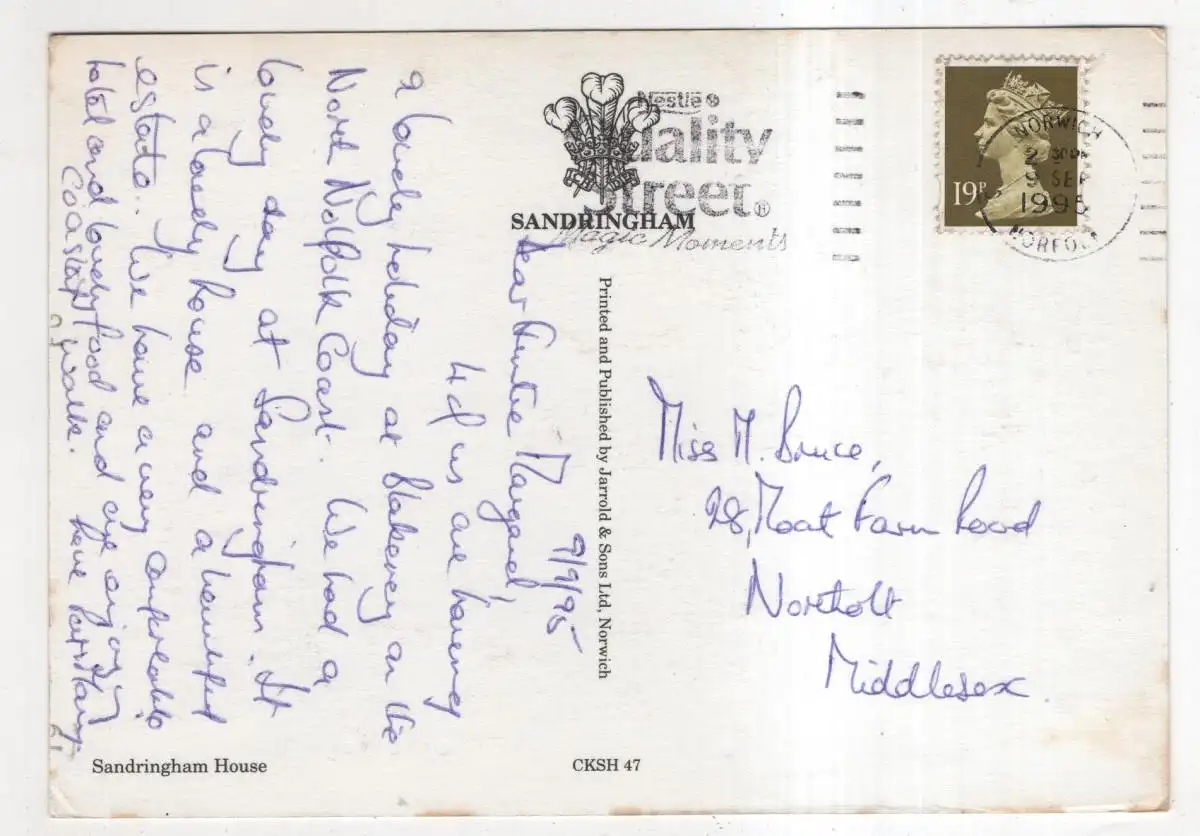 Nestlé ®
uality
Street®
Magic Moments
SANDRINGHAM
19P
NORWICH
9 SEP
1995
NORFOLK
9/9/95
Dear Auntie Margaret,
4 of us are having
a lovely holiday at Blakeney on the
North Norfolk Coast. We had a
lovely day at Sandringham. It
is a lovely house and a beautiful
estate. We have a very comfortable
hotel and lovely food and are enjoying
coastal walks.
love
Printed and Published by Jarrold & Sons Ltd, Norwich
Miss M. Bruce,
28, Moat Farm Road
Northolt
Middlesex
Sandringham House
CKSH 47